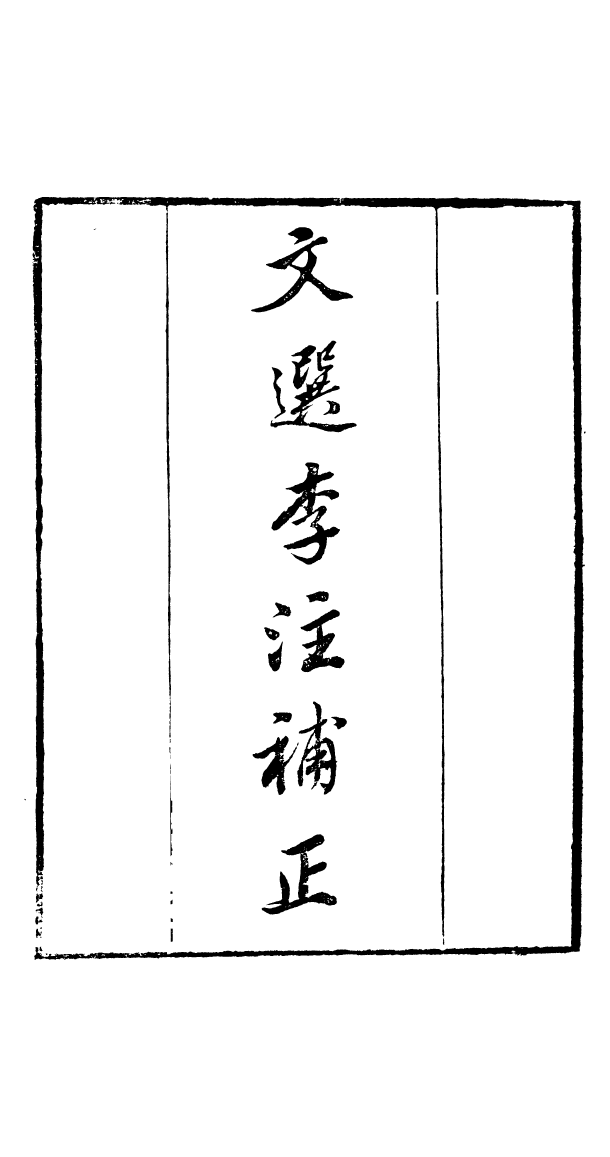 文選李注補正